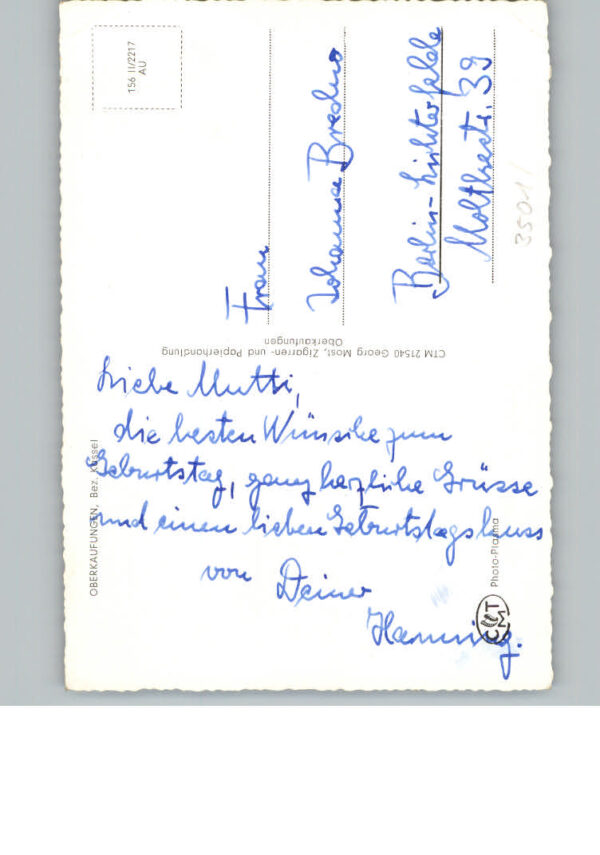 156 II/2217
AU
Frau
Johannes Bredno
Berlin-Lichterfelde
Moltkestr. 39
35011
CTM 21540 Georg Most, Zigarren- und Papierhandlung
Oberkaufungen
Liebe Mutti,
die besten Wünsche zum
Geburtstag, ganz herzliche Grüsse
und einen lieben Geburtstagskuss
von Deiner
Henning.
OBERKAUFUNGEN, Bez. Kassel
Photo-Plasma
CMT